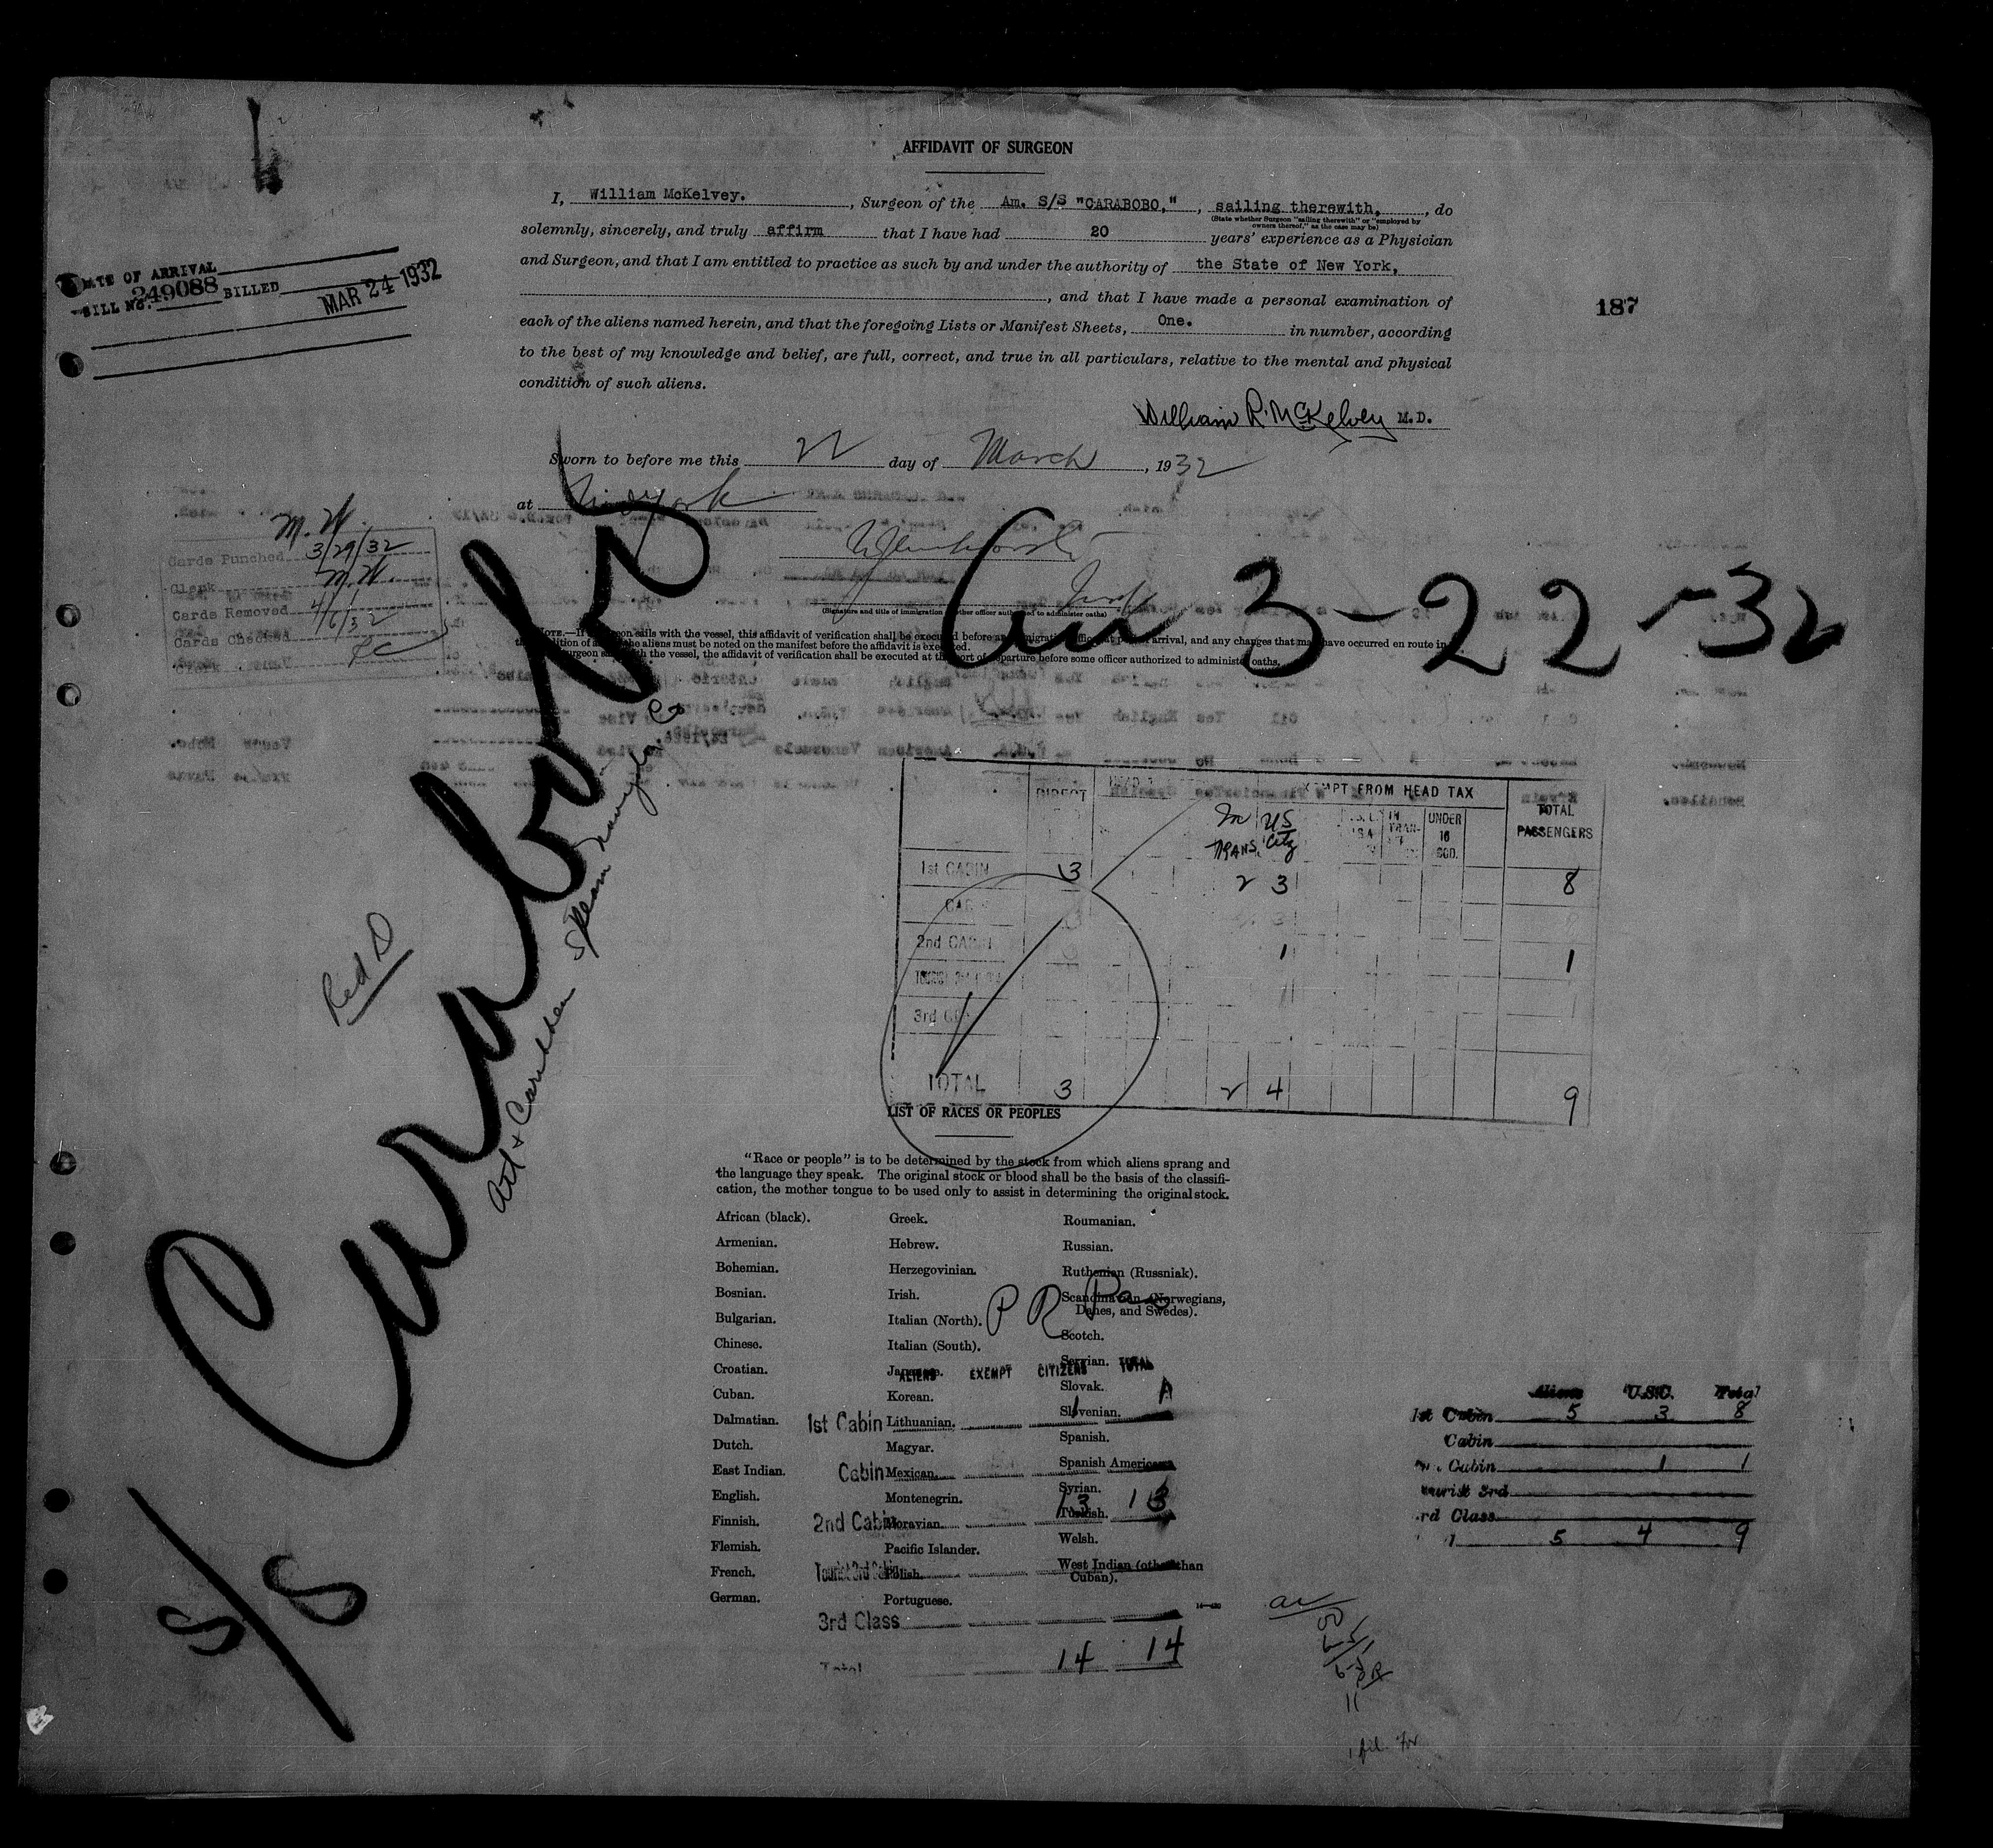 AFFIDAVIT OF SURGEON
I, William McKelvey. , Surgeon of the Am. S/S "CARABOBO," , sailing therewith, , do
(State whether Surgeon "sailing therewith" or "employed by
owners thereof," as the case may be)
solemnly, sincerely, and truly affirm that I have had 20 years' experience as a Physician
and Surgeon, and that I am entitled to practice as such by and under the authority of the State of New York,
, and that I have made a personal examination of
each of the aliens named herein, and that the foregoing Lists or Manifest Sheets, One. in number, according
to the best of my knowledge and belief, are full, correct, and true in all particulars, relative to the mental and physical
condition of such aliens.
William R. McKelvey M.D.
Sworn to before me this 22 day of March , 1932
at New York
DATE OF ARRIVAL
BILL NO. 249088 BILLED MAR 24 1932
187
M. W.
Cards Punched 3/29/32
Clerk M. W.
Cards Removed 4/6/32
Cards Checked
Clerk
Arr 3-22-32
(Signature and title of immigration or other officer authorized to administer oaths)
NOTE.—If surgeon sails with the vessel, this affidavit of verification shall be executed before an immigration officer at port of arrival, and any changes that may have occurred en route in
the condition of any of the aliens must be noted on the manifest before the affidavit is executed.
surgeon sails with the vessel, the affidavit of verification shall be executed at the port of departure before some officer authorized to administer oaths.
S/S Carabobo
Red D
Atl & Caribbean Steam Navigation Co
DIRECT HEAD EXEMPT FROM HEAD TAX TOTAL PASSENGERS
In TRANS. US City IN TRAN- UNDER 16
1st CABIN 3 2 3 8
2nd CABIN 1 1
3rd
TOTAL 3 2 4 9
LIST OF RACES OR PEOPLES
"Race or people" is to be determined by the stock from which aliens sprang and
the language they speak. The original stock or blood shall be the basis of the classifi-
cation, the mother tongue to be used only to assist in determining the original stock.
African (black).
Armenian.
Bohemian.
Bosnian.
Bulgarian.
Chinese.
Croatian.
Cuban.
Dalmatian.
Dutch.
East Indian.
English.
Finnish.
Flemish.
French.
German.
Greek.
Hebrew.
Herzegovinian.
Irish.
Italian (North).
Italian (South).
Japanese.
Korean.
Lithuanian.
Magyar.
Mexican.
Montenegrin.
Moravian.
Pacific Islander.
Polish.
Portuguese.
Roumanian.
Russian.
Ruthenian (Russniak).
Scandinavian (Norwegians,
Danes, and Swedes).
Scotch.
Servian.
Slovak.
Slovenian.
Spanish.
Spanish American.
Syrian.
Turkish.
Welsh.
West Indian (other than
Cuban).
P R Pas
ALIENS EXEMPT CITIZENS TOTAL
1st Cabin 1
Cabin
2nd Cabin 13 13
Tourist 3rd Cabin
3rd Class
Total 14 14
Aliens U.S.C. Total
1st Cabin 5 3 8
Cabin
Cabin 1 1
Tourist 3rd
3rd Class
5 4 9